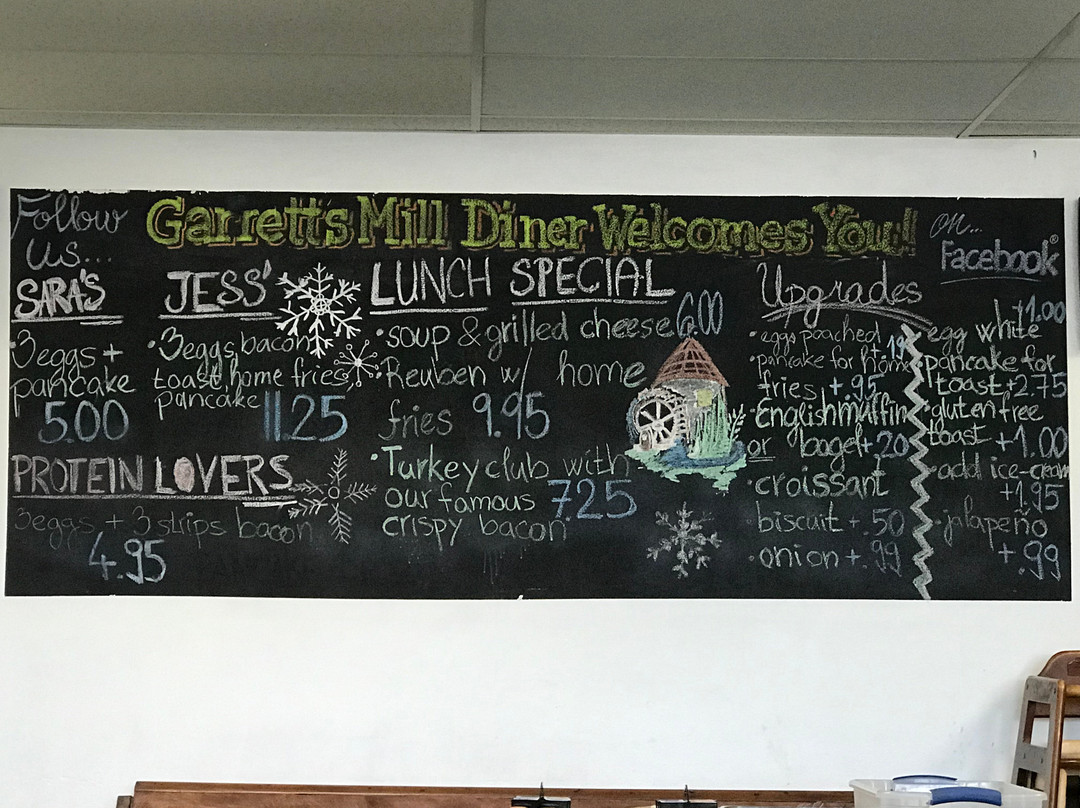 Follow
us...
Garrett's Mill Diner Welcomes You!!
on...
Facebook®
SARA'S
3 eggs +
pancake
5.00
PROTEIN LOVERS
3 eggs + 3 strips bacon
4.95
JESS'
• 3 eggs, bacon
toast, home fries,
pancake 11.25
LUNCH SPECIAL
• soup & grilled cheese 6.00
• Reuben w/ home
fries 9.95
• Turkey club with
our famous 725
crispy bacon
Upgrades
• eggs poached +.19
• pancake for home
fries +.95
• English muffin
or bagel +.20
• croissant
biscuit +.50
• onion +.99
+1.00
egg white
pancake for
toast +2.75
• gluten free
toast +1.00
• add ice-cream
+1.95
• jalapeño
+.99